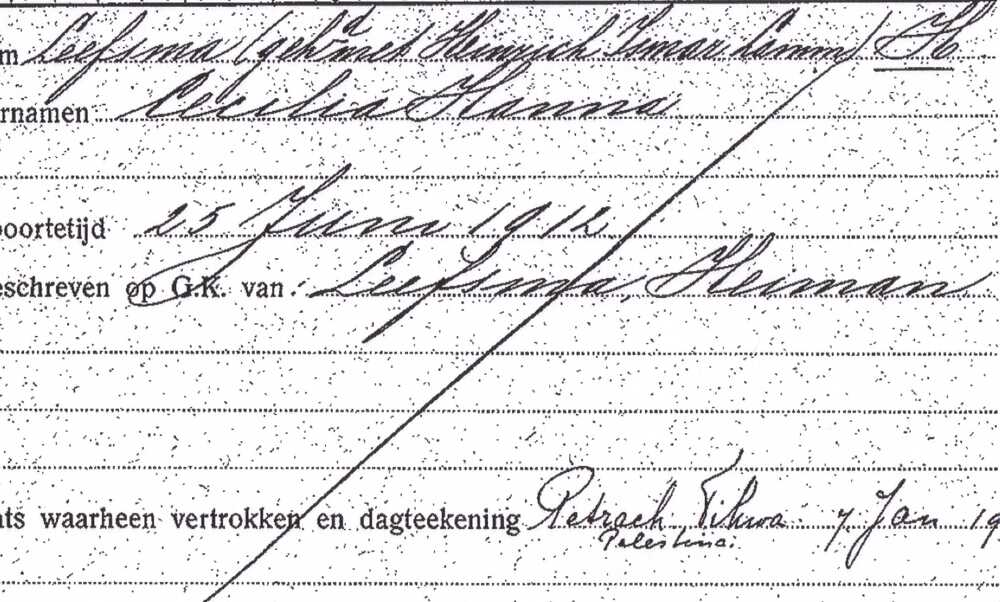 m Leefsma (geh. met Heinrich Ismar Lamm) H
rnamen Cecilia Hanna
oortetijd 25 Juni 1912
eschreven op G.K. van: Leefsma, Heiman
ats waarheen vertrokken en dagteekening Petrach Tikwa 7 Jan 19
Palestina.